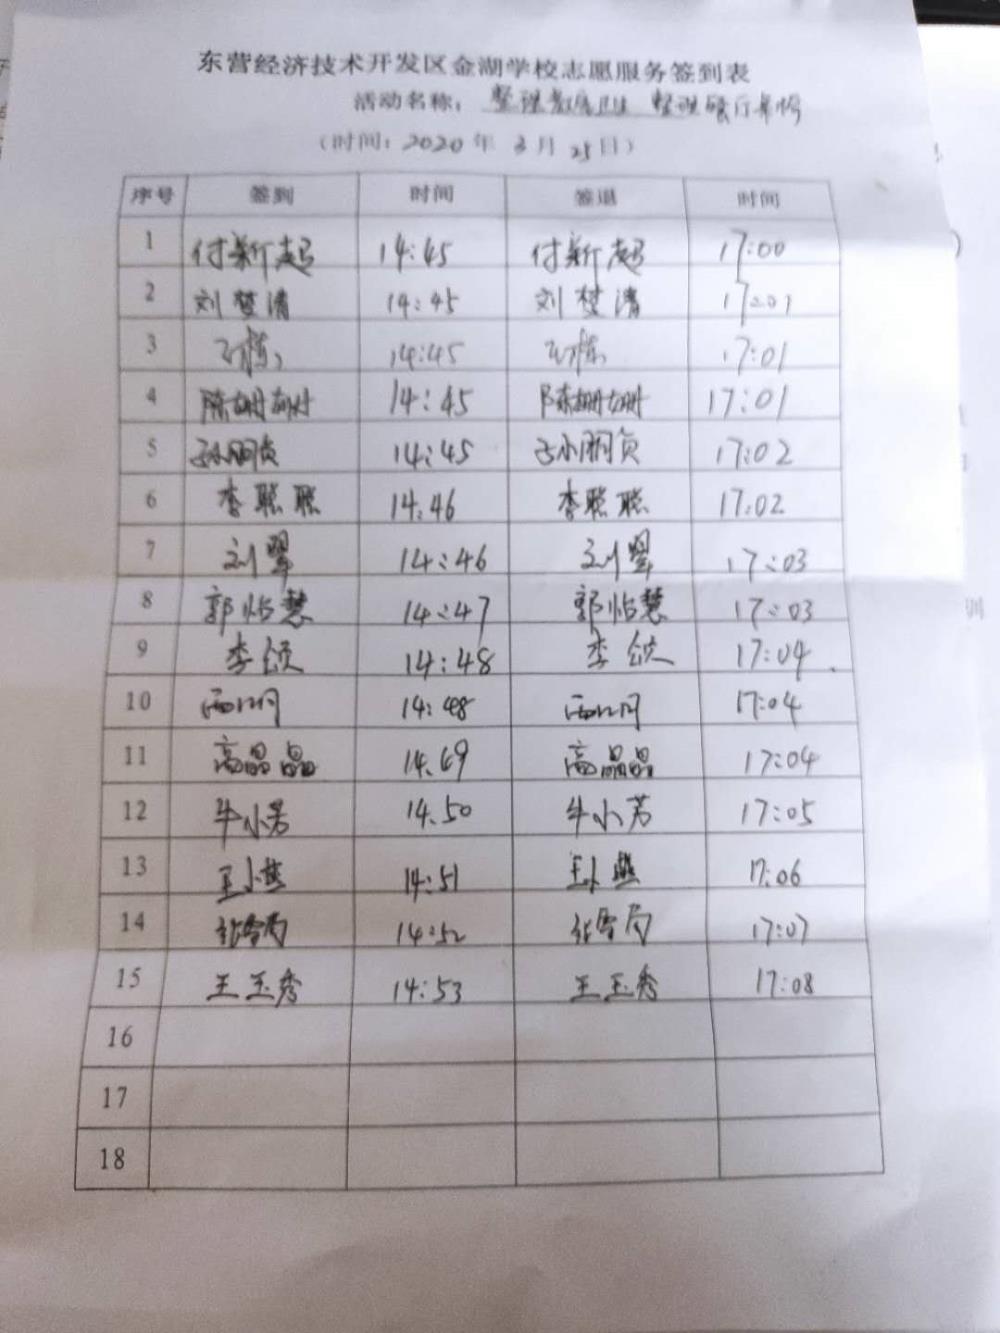 东营经济技术开发区金湖学校志愿服务签到表
活动名称：整理教室卫生 整理餐厅桌椅
（时间：2020年3月25日）
序号 签到 时间 签退 时间
1 付新超 14:45 付新超 17:00
2 刘梦清 14:45 刘梦清 17:01
3 14:45 17:01
4 陈姗姗 14:45 陈姗姗 17:01
5 14:45 17:02
6 李聪聪 14:46 李聪聪 17:02
7 14:46 17:03
8 郭怡慧 14:47 郭怡慧 17:03
9 李颂 14:48 李颂 17:04
10 14:48 17:04
11 高晶晶 14.49 高晶晶 17:04
12 牛小芳 14.50 牛小芳 17:05
13 王小燕 14:51 王小燕 17:06
14 14:52 17:07
15 王玉秀 14:53 王玉秀 17:08
16
17
18